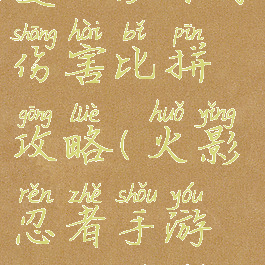 shāng hài bǐ pīn
伤害比拼
gōng lüè huǒ yǐng
攻略(火影
rěn zhě shǒu yóu
忍者手游